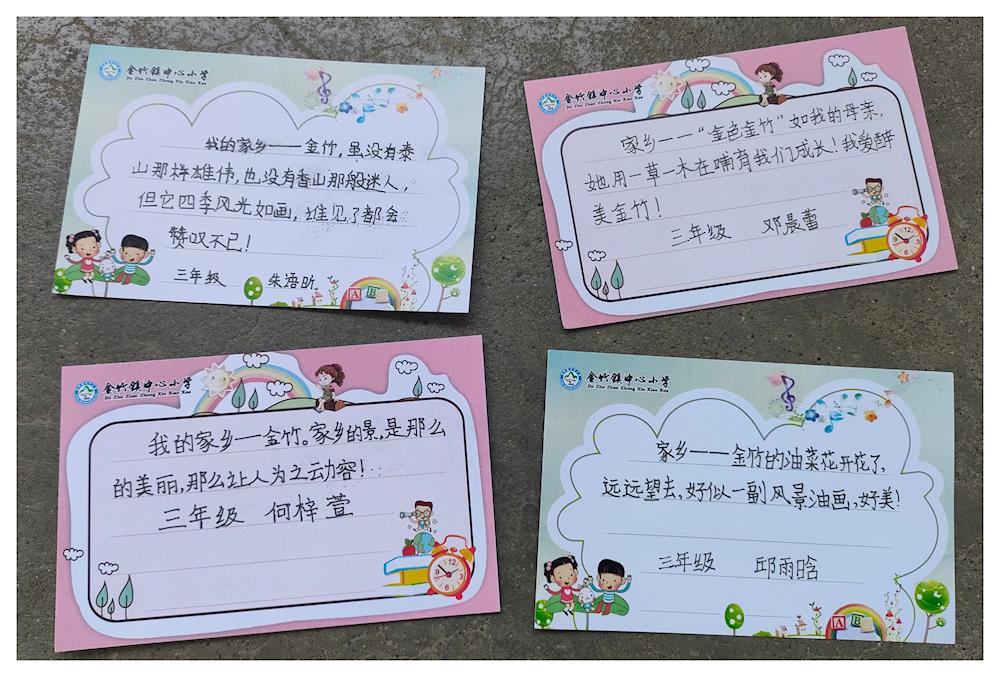 金竹镇中心小学
Jin Zhu Zhen Zhong Xin Xiao Xue
我的家乡——金竹,虽没有泰
山那样雄伟,也没有香山那般迷人,
但它四季风光如画,谁见了都会
赞叹不已!
三年级 朱语昕
A B
金竹镇中心小学
Jin Zhu Zhen Zhong Xin Xiao Xue
家乡——“金色金竹”如我的母亲,
她用一草一木在哺育我们成长!我爱醉
美金竹!
三年级 邓晨蕾
金竹镇中心小学
Jin Zhu Zhen Zhong Xin Xiao Xue
我的家乡—金竹。家乡的景,是那么
的美丽,那么让人为之动容!
三年级 何梓萱
金竹镇中心小学
Jin Zhu Zhen Zhong Xin Xiao Xue
家乡——金竹的油菜花开花了,
远远望去,好似一副风景油画,好美!
三年级 邱雨晗
A B